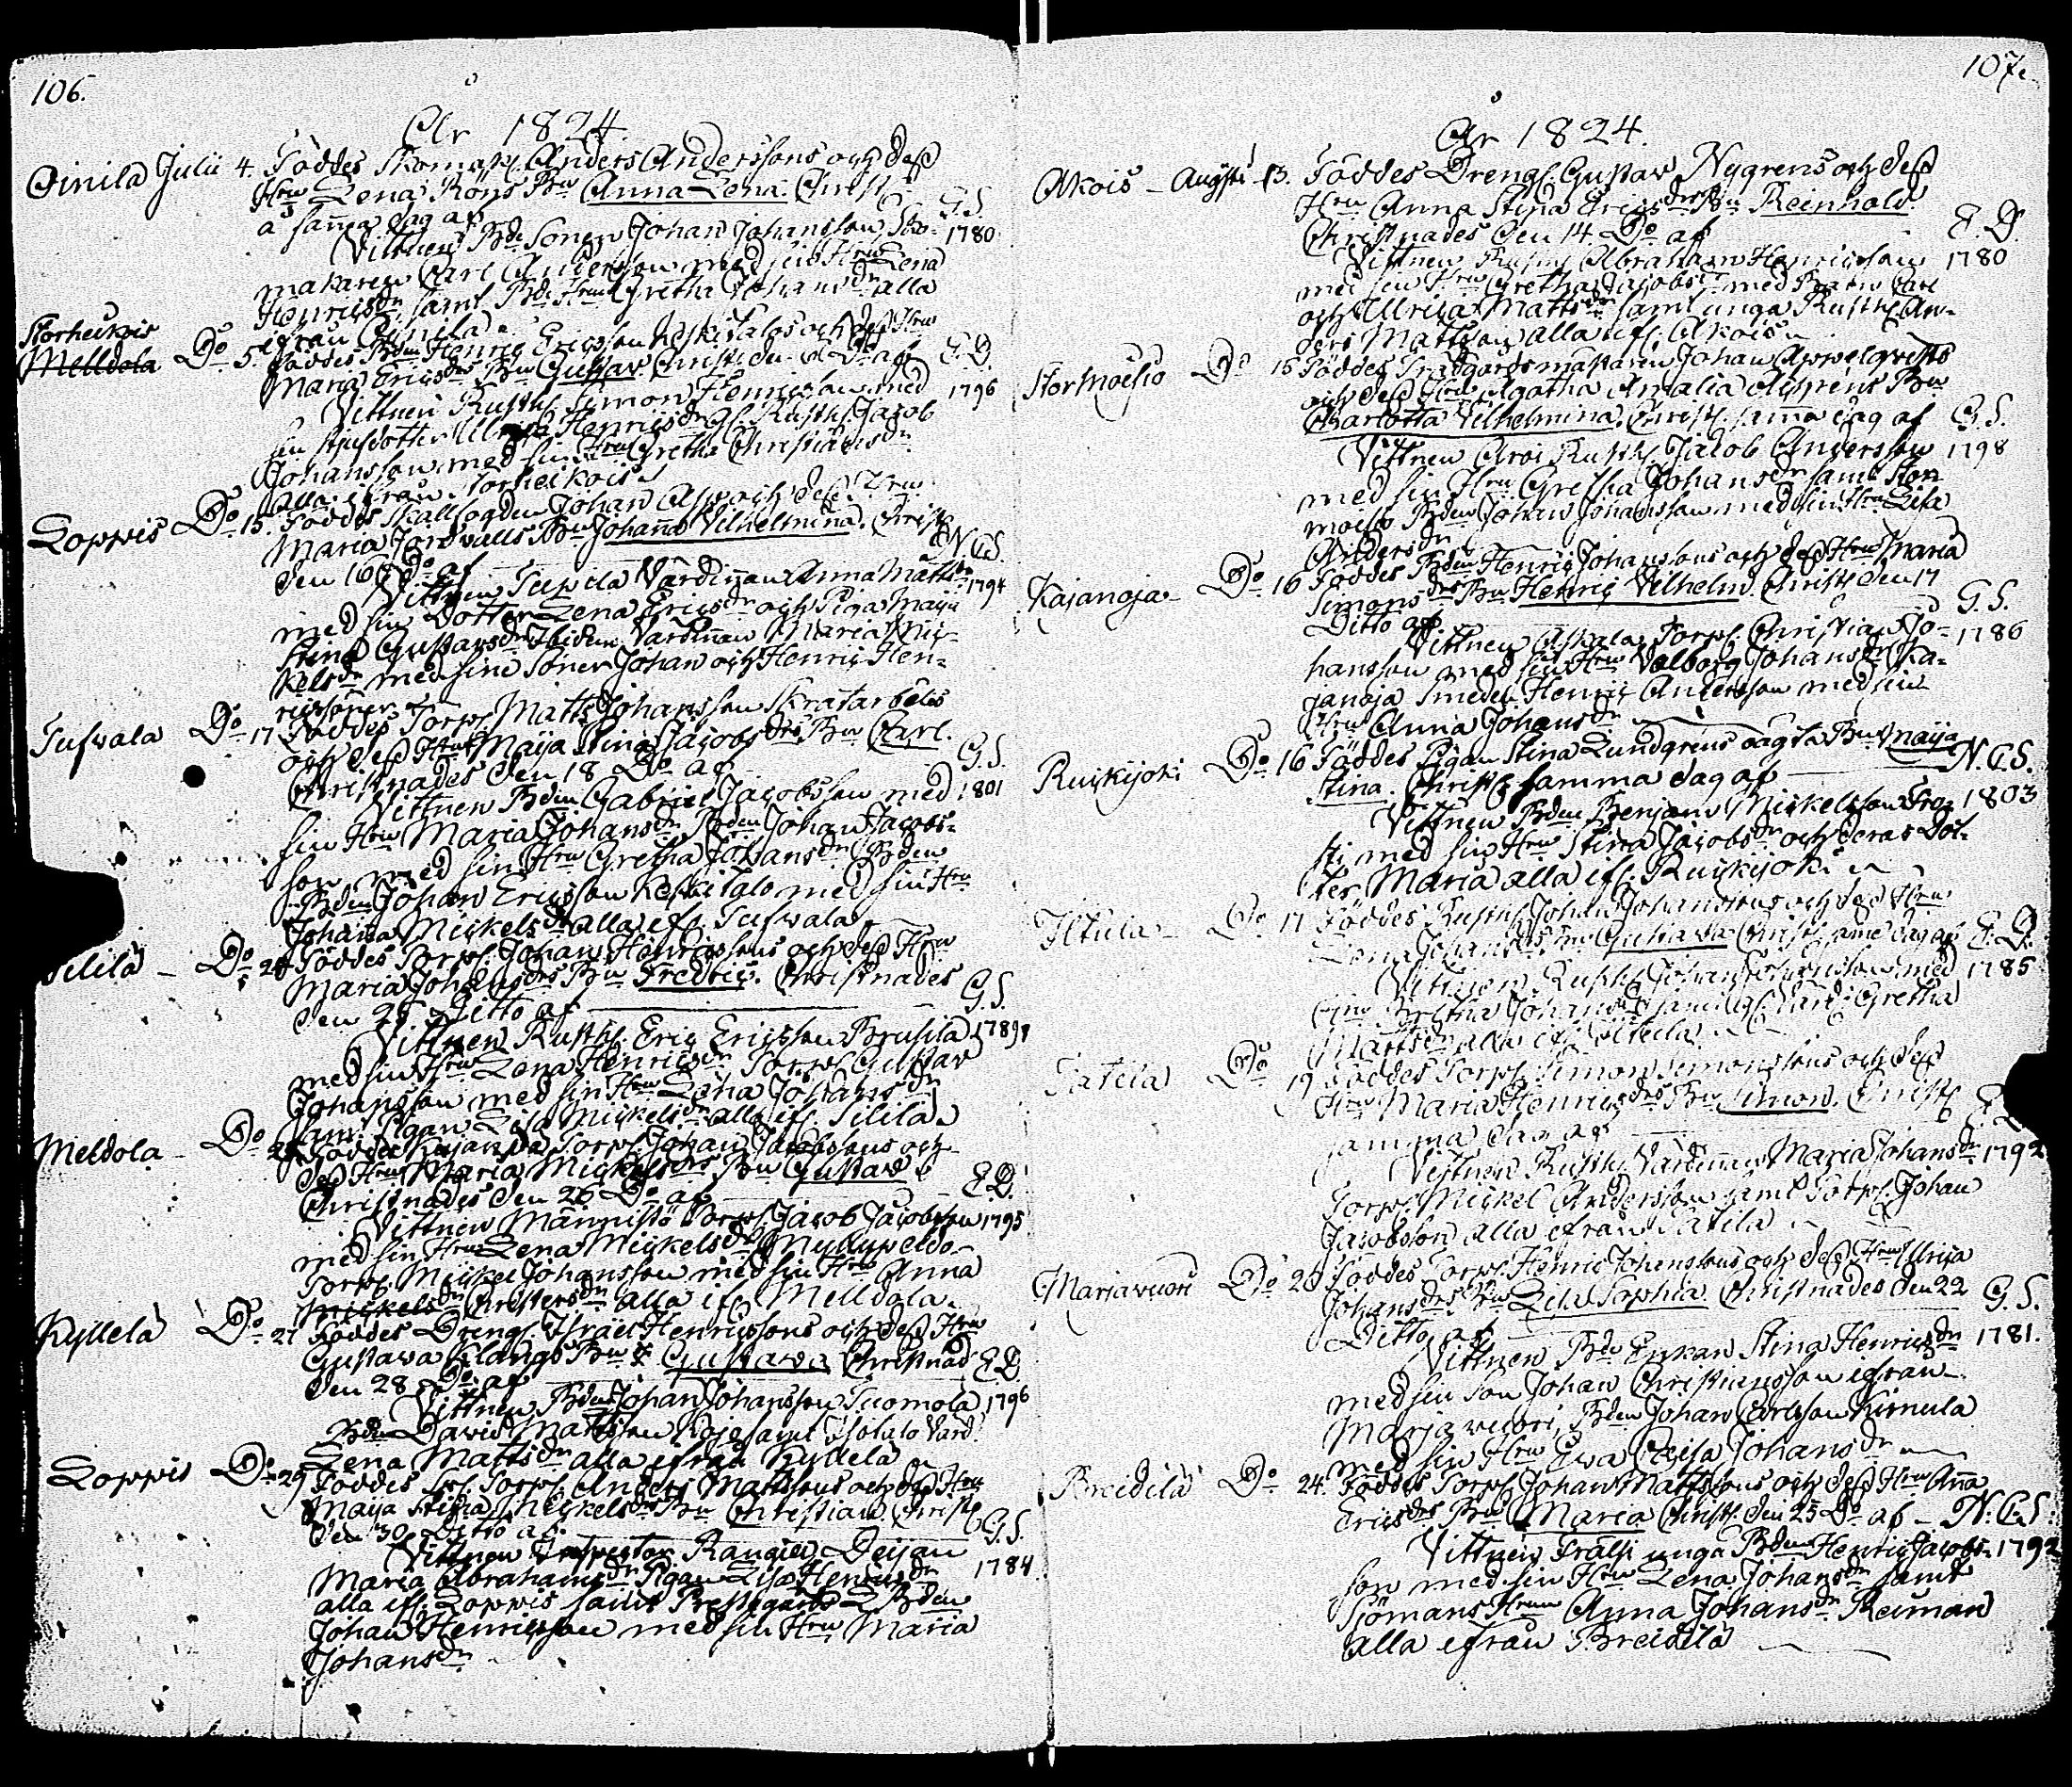 106.
År 1824.
Oinila Julii 4. Föddes Skomak. Anders Anderssons och dess
Hru Lena Röns Bn Anna Lena. Christ.
å samma dag af G.S.
Vittnen Bde Sonen Johan Johansson, Sko- 1780
makaren Carl Andersson med sin Hru Lena
Henricsdn samt Bde Hrun Gretha Johansdn alla
ifrån Oinila
Storheikois
Melldola Do 5. Föddes Bden Henric Ericsson Keskitalos och dess Hru
Maria Ericsdrs Bn Gustav Christ. den 6 Do af E.D.
Vittnen Rusth. Simon Henricsson med 1796
sin styfdotter Ulrica Henricsdn Gl. Rusth. Jacob
Johansson med sin Hru Gretha Christiansdn
alla ifrån Storheikois
Loppis Do 15. Föddes Skallfogden Johan Asp och dess Hru
Maria Jordvalls Bn Johanna Vilhelmina. Christ.
den 16 Do af N.C.S.
Vittnen Värdinnan Anna Mattsdn 1794
med sin Dotter Lena Ericsdn och Pigan Maija
Stina Gustavsdn Ibidem Värdinnan Maria Mic-
kelsdn med sine Söner Johan och Henric Hen-
ricssöner
Tufwala Do 17 Föddes Torp. Matts Johansson Skratarbeles
och dess Hru Maija Stina Jacobsdrs Bn Carl.
Christnades den 18 Do af G.S.
Vittnen Bden Gabriel Jacobsson med 1801
sin Hru Maria Johansdn Bden Johan Jacobs-
son med sin Hru Gretha Johansdn Bden
Bden Johan Ericsson Keskitalo med sin Hru
Johanna Mickelsdn alla if. Tufwala
Sililä Do 24 Föddes Torp. Johan Henricssons och dess Hru
Maria Johansdrs Bn Fredric. Christnades
den 25. Ditto af G.S.
Vittnen Rusth. Eric Ericsson Brusila 1789
med sin Hru Lena Henricsdn Torp. Gustav
Johansson med sin Hru Lena Johansdn
samt Pigan Lisa Mickelsdn alla if. Sililä
Meldola Do 25 Föddes Kujanpää Torp. Johan Jacobssons och
dess Hru Maria Mickelsdrs Bn Gustav
Christnades den 26 Do af E.D.
Vittnen Männistö Torp. Jacob Jacobsson 1795
med sin Hru Lena Mickelsdn Myllypeldo
Torp. Mickel Johansson med sin Hru Anna
Mickelsdn Christersdn alla if. Melldola
Kyllelä Do 27 Föddes Dreng. Israel Henricssons och dess Hru
Gustava Klangs Bn Gustava Christnad
den 28 Do af E.D.
Vittnen Bden Johan Johansson Tuomola 1796
Bden David Mattsson Koje samt Isotalo Värd.
Lena Mattsdn alla ifrån Kyllelä
Loppis Do 29 Föddes Torp. Anders Mattssons och dess Hru
Maija Stina Mickelsdrs Bn Christian. Christ.
den 30 Ditto af G.S.
Vittnen Inspector Deijan 1784
Maria Abrahamsdn Pigan Lisa Henricsdn
alla if. Loppis samt Prestgårds L. Bden
Johan Henricsson med sin Hru Maria
Johansdn
107.
År 1824.
Okois Augusti 13. Föddes Dreng. Gustav Nygrens och dess
Hru Anna Stina Ericsdrs Bn Reinhold.
Christnades den 14. Do af E.D.
Vittnen Rusth. Abraham Henricsson 1780
med sin Hru Gretha Jacobsdn med Barn Carl
och Ullrica Mattsdn samt unga Rusth. An-
ders Mattsson alla if. Okois
Stormoisio Do 15 Föddes Trädgårdsmästaren Johan Appelqvists
och dess Hru Agatha Amalia Alprens Bn
Charlotta Vilhelmina. Christ. samma dag af G.S.
Vittnen Arvi Rusth. Jacob Andersson 1798
med sin Hru Gretha Johansdn samt Stor
moisio Bden Johan Johansson med sin Hru Lisa
Andersdn
Kajanoja Do 16 Föddes Bden Henric Johanssons och dess Hru Maria
Simonsdrs Bn Henric Vilhelm. Christ. den 17
Ditto af G.S.
Vittnen Torp. Christian Jo- 1786
hansson med sin Hru Valborg Johansdn Ka-
janoja Smeden Henric Andersson med sin
Hru Anna Johansdn
Ruickijoki Do 16 Föddes Pigan Stina Lundgrens oägta Bn Maija
Stina. Christ. samma dag af N.C.S.
Vittnen Bden Benjam. Mickelsson Pro- 1803
sti med sin Hru Stina Jacobsdn och deras Dot-
ter Maria alla if. Ruickijoki
Iltula Do 17 Föddes Rusth. Johan Johanssons och dess Hru
Lena Johansdrs Bn Gustava. Christ. samma dag af E.D.
Vittnen Rusth. Johan Johansson med 1785
Hru Gretha Johansdn samt Gl. Värd. Gretha
Mattsdn alla if. Iltula
Do 19 Föddes Torp. Simon Simonssons och dess
Hru Maria Henricsdrs Bn Simon. Christ.
samma dag af
Vittnen Rusth. Värdinnan Maria Johansdn 1792
Torp. Mickel Andersson samt Torp. Johan
Jacobsson alla ifrån
Marjavuori Do 20 Föddes Torp. Henric Johanssons och dess Hru Ulrica
Johansdrs Bn Lena Sophia. Christnades den 22 G.S.
Ditto af
Vittnen Bde Enkan Stina Henricsdn 1781.
med sin Son Johan Christiansson ifrån
Marjavuori, Bden Johan Carlsson Kimula
med sin Hru Ewa Cajsa Johansdn
Breidilä Do 24. Föddes Torp. Johan Mattssons och dess Hru Anna
Ericsdrs Bn Maria Christ. den 25 Do af N.C.S.
Vittnen Frälsi unga Bden Henric Jacobs- 1792
son med sin Hru Lena Johansdn samt
Sjömans Hrun Anna Johansdn Reiman
alla ifrån Breidilä